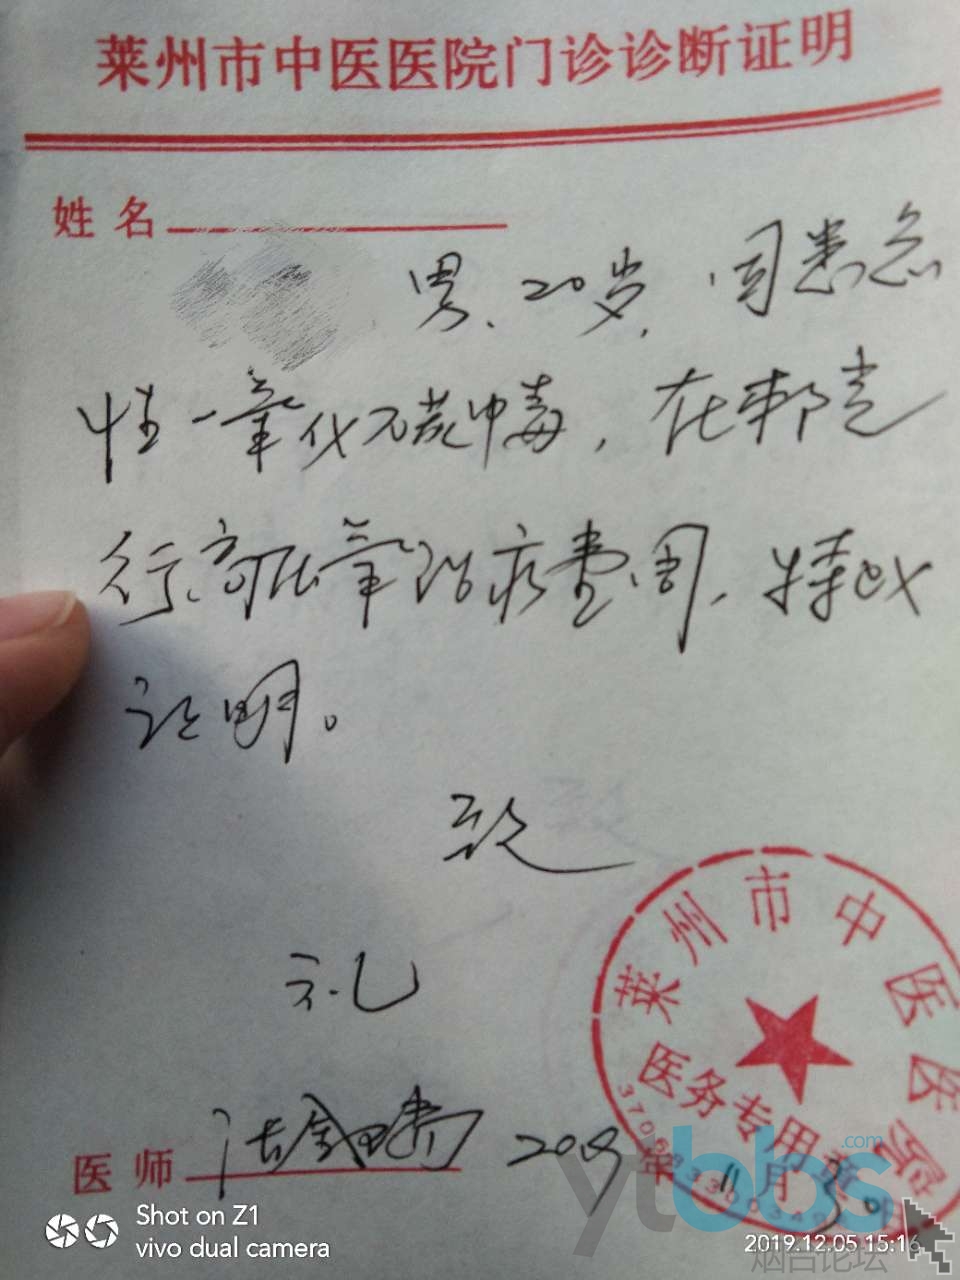 莱州市中医医院门诊诊断证明
姓名
男、20岁,因患急
性一氧化碳中毒,在我院
行高压氧治疗壹周,特此
证明。
致
礼
医师
2019年11月30日
莱州市中医医院
医务专用章
ytbbs.com
烟台论坛
Shot on Z1
vivo dual camera
2019.12.05 15:16